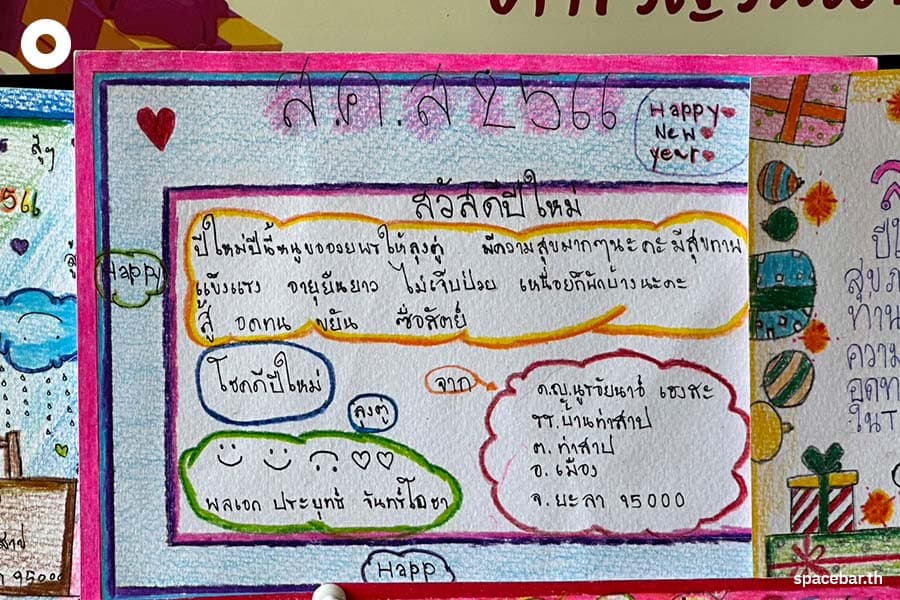 ส.ค.ส ๒566
Happy
New
year
สวัสดีปีใหม่
ปีใหม่ปีนี้หนูขออวยพรให้ลุงตู่ มีความสุขมากๆนะคะ มีสุขภาพ
แข็งแรง อายุยืนยาว ไม่เจ็บป่วย เหนื่อยก็พักบ้างนะคะ
สู้ อดทน ขยัน ซื่อสัตย์
Happy
โชคดีปีใหม่
ลุงตู่
จาก
ด.ญ.นูรอัยนาว์ เฮงสะ
รร.บ้านท่าสาป
ต. ท่าสาป
อ. เมือง
จ. ยะลา 95000
พลเอก ประยุทธ์ จันทร์โอชา
Happ
สุขภ
ท่าน
ความ
อดท
566
spacebar.th